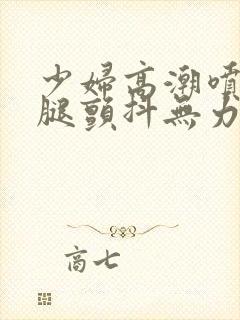 少婦高潮噴
腿顫抖無力
商七